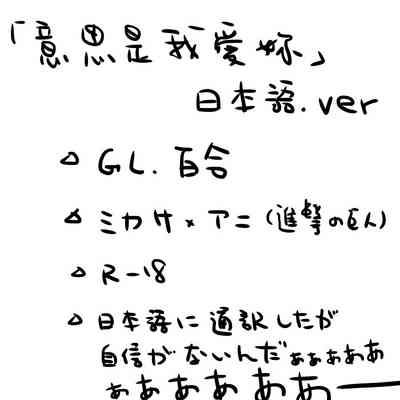 「意思是我愛妳」
日本語.ver
△ GL. 百合
△ ミカサ×アニ(進撃の巨人)
△ R-18
△ 日本語に通訳したが
自信がないんだぁぁぁぁぁ
ぁあああああー